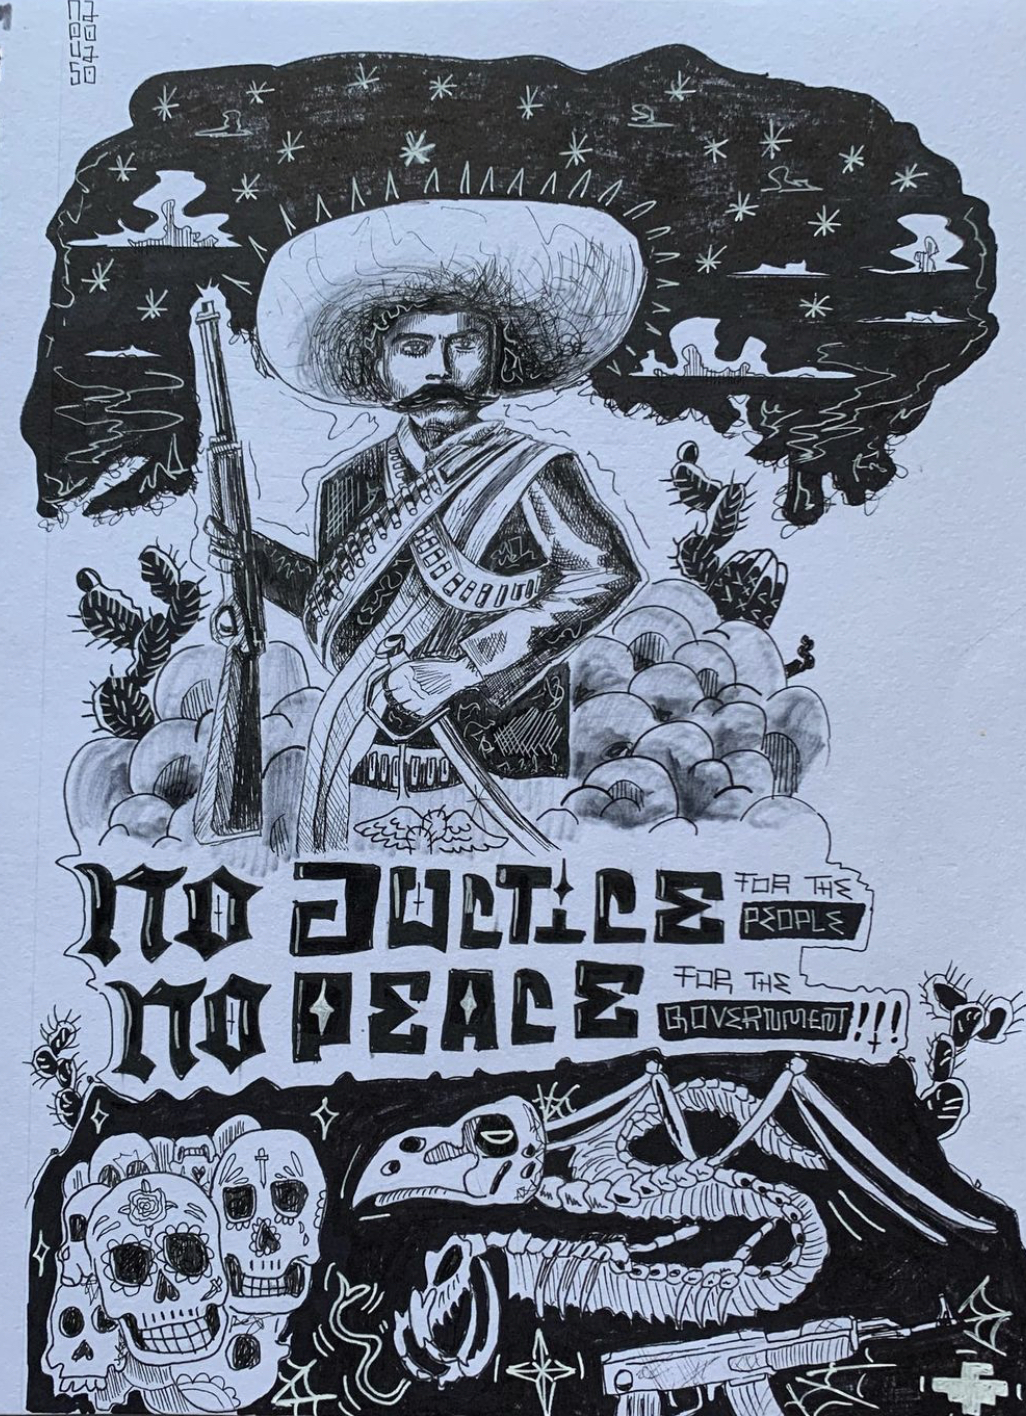 NO JUSTICE FOR THE
PEOPLE
NO PEACE FOR THE
GOVERNMENT!!!